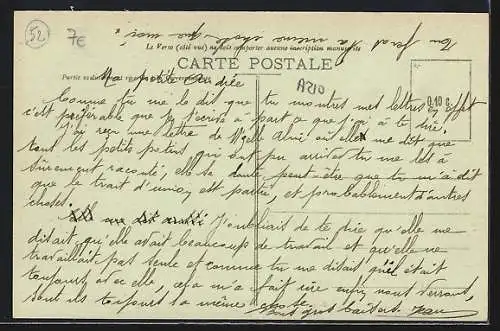 52
7€
Ton fend la même chose que moi.
Le Verso (côté vu) ne doit comporter aucune inscription manuscrite
CARTE POSTALE
Partie exclusivement
A210
Ma petite
Comme tu me le dit que tu montres mes lettres en effet
c'est préférable que je t'écrive à part ce que j'ai à te dire,
J'ai reçu une lettre de Melle où elle me dit, que
tout les petits potins qui ont pu arriver tu me les à
sûrement raconté, elle se doute peut être que tu m'a dit
que le trait d'union est parti, et probablement d'autres
choses.
J'oubliais de te dire qu'elle me
disait, qu'elle avait beaucoup de travail et qu'elle ne
travaillait pas seule et comme tu me disait qu'il était
toujours avec elle, cela m'a fait rire enfin nous verrons,
sont ils toujours la même chose.
gros baisers. Jean
0,10 €